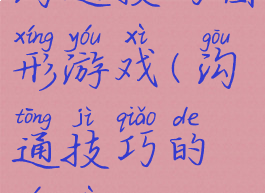 xíng yóu xì gōu
形游戏(沟
tōng jì qiǎo de
通技巧的